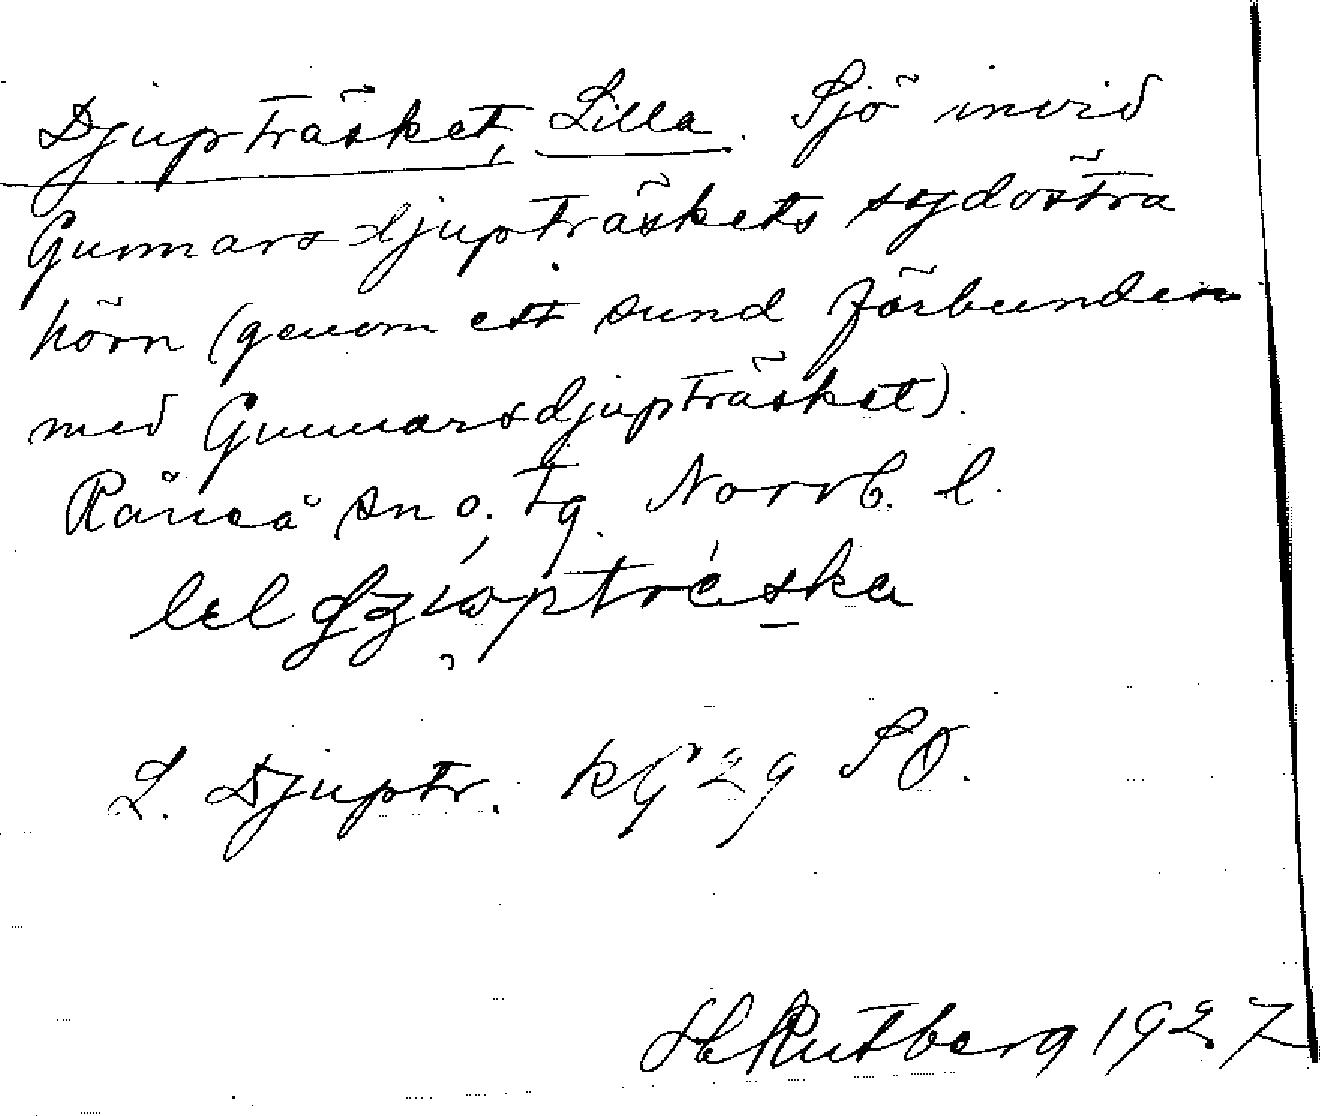 Djupträsket, Lilla. Sjö invid
Gunnarsdjupträskets sydöstra
hörn (genom ett sund förbunden
med Gunnarsdjupträsket).
Råneå sn o. tg. Norrb. l.
lɛl
L. Djuptr. kG 29 SO.
H Rutberg 1927